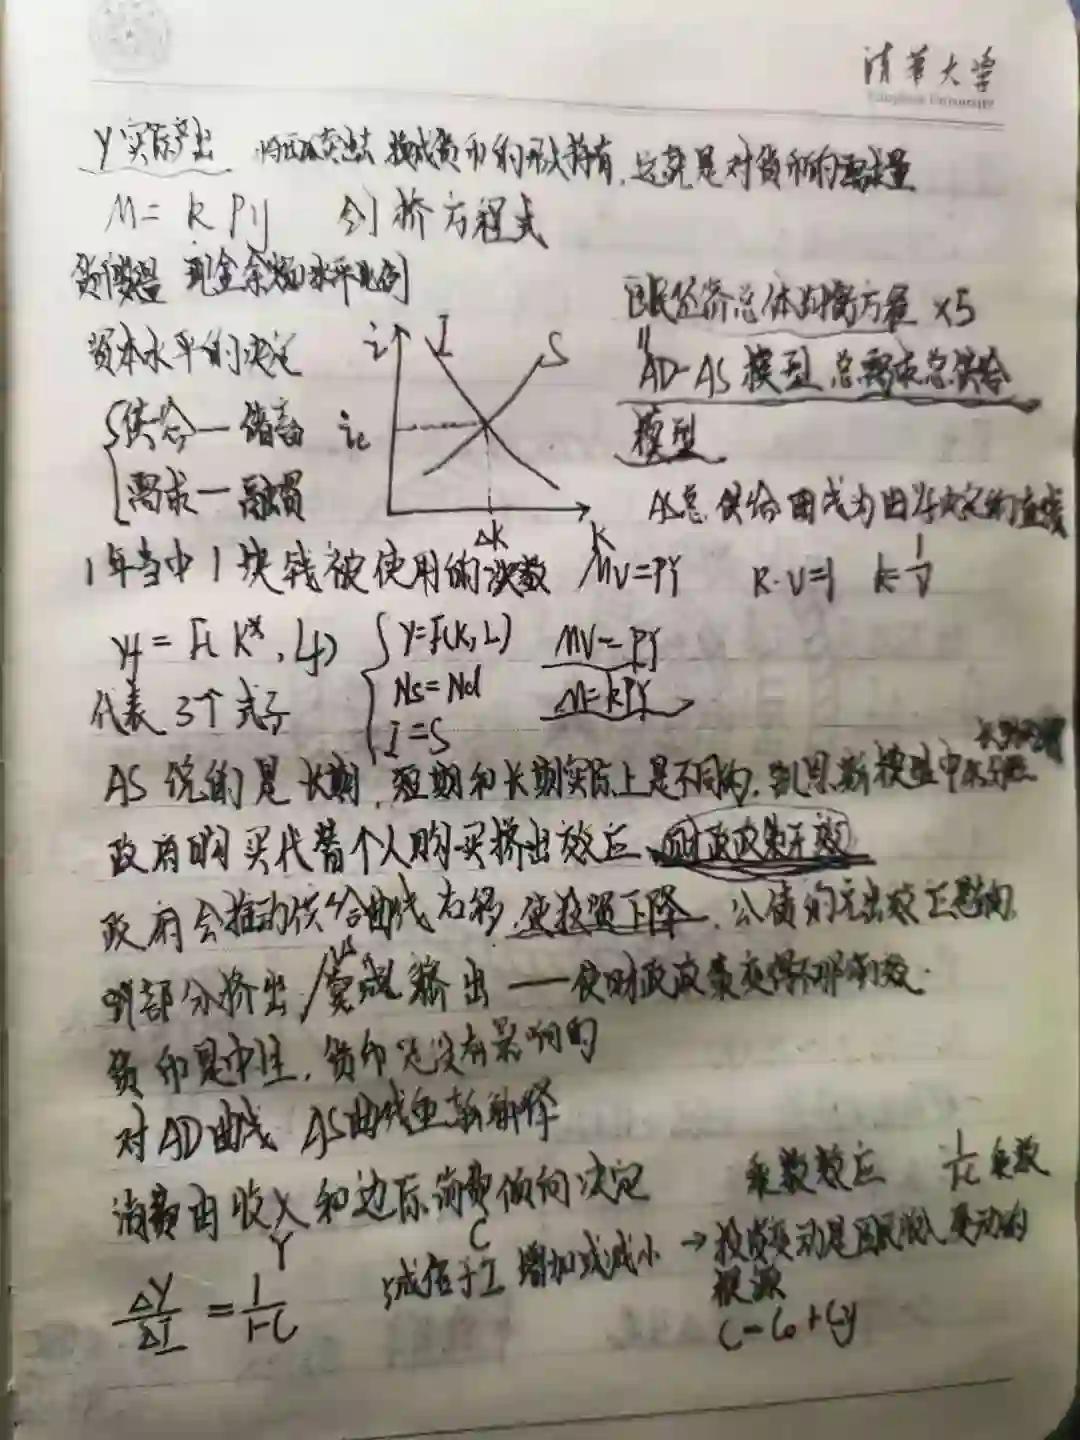 清华大学
Tsinghua University
Y实际产出 换成货币的形式持有，这就是对货币的需求量
M = k Py 剑桥方程式
货币数量 现金余额水平比例
资本水平的决定
供给 — 储蓄
需求 — 融资
i I S
i₀
Δk k
国民经济总体均衡方程 ×5
AD-AS 模型 总需求总供给
模型
AS总供给曲线为由Yf决定的直线
1年当中1块钱被使用的次数 MV=PY k·V=1 k=1/V
yf = F( K*, Lf)
代表 3个式子
Y=F(K, L)
Ns = Nd
I = S
MV = PY
M=kPY
AS说的是长期，短期和长期实际上是不同的，凯恩斯模型中
政府购买代替个人购买挤出效应，财政政策无效
政府会推动供给曲线右移，使投资下降，公债的
部分挤出/完全挤出 — 使财政政策变得不那么有效．
货币是中性，货币是没有影响的
对AD曲线 AS曲线重新解释
消费由收入和边际消费倾向决定
Y C
乘数效应 乘数
ΔY/ΔI = 1/1-C
成倍于I 增加或减小 → 投资变动是国民收入变动的
根源
C = C₀ + Cy